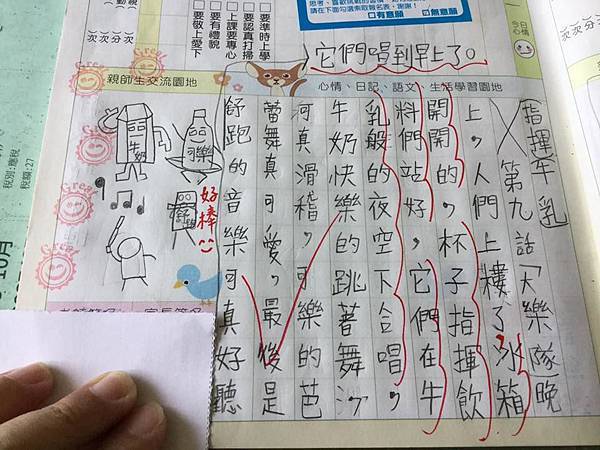 今日心情
次
次
分
次
親
勤
□要準時上學
□要認真打掃
□上課要專心
□要有禮貌
□要敬上愛下
請在下面勾選索取報名表，謝謝！
□有意願 □無意願
它們唱到早上了。
親師生交流園地
心情、日記、語文、生活學習園地
指揮 乳 第九話「大樂隊晚
上，人們上樓了，冰箱
開開的，杯子指揮飲
料們站好，它們在牛
乳般的夜空下合唱，
牛奶快樂的跳著舞
河真滑稽，可樂的芭
蕾舞真可愛，最後是
舒跑的音樂可真好聽
牛奶
可樂
舒跑
好棒
Great
Great
Great
Great
稅額:27
10月